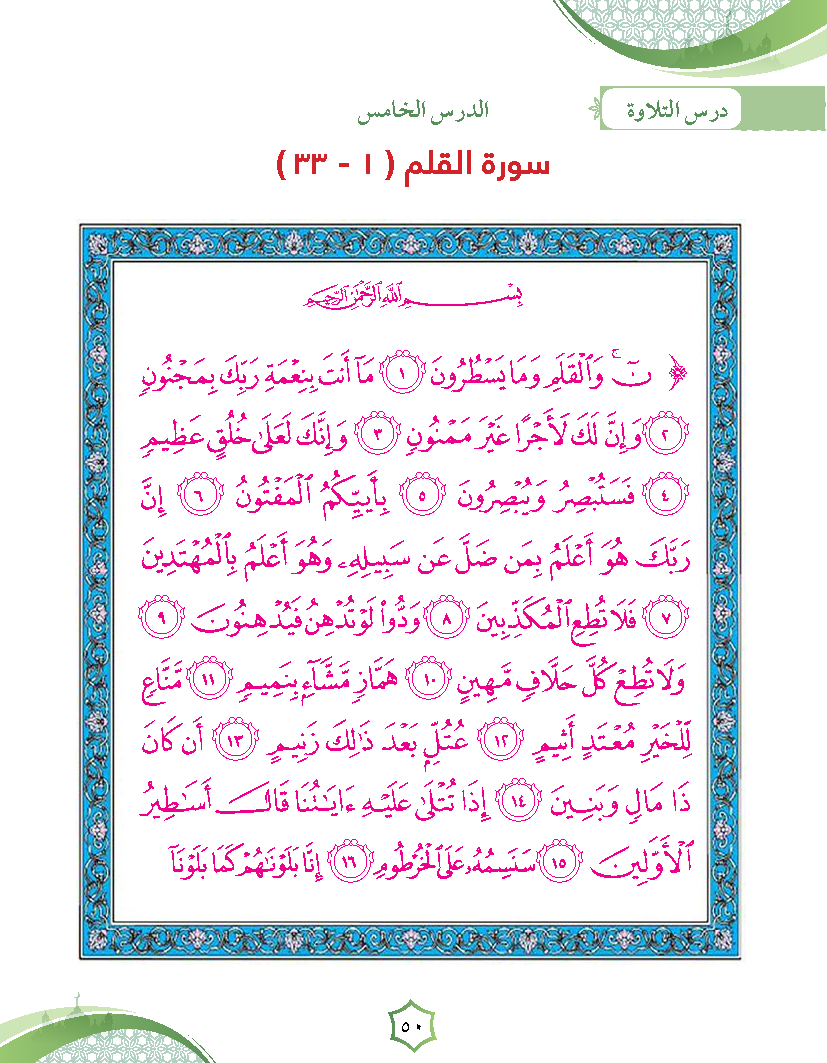 درس التلاوة
الدرس الخامس
سورة القلم ( ١ - ٣٣ )
بِسْمِ اللَّهِ الرَّحْمَٰنِ الرَّحِيمِ
﴿ نٓ ۚ وَٱلْقَلَمِ وَمَا يَسْطُرُونَ ١ مَآ أَنتَ بِنِعْمَةِ رَبِّكَ بِمَجْنُونٖ
٢ وَإِنَّ لَكَ لَأَجْرًا غَيْرَ مَمْنُونٖ ٣ وَإِنَّكَ لَعَلَىٰ خُلُقٍ عَظِيمٖ
٤ فَسَتُبْصِرُ وَيُبْصِرُونَ ٥ بِأَييِّكُمُ ٱلْمَفْتُونُ ٦ إِنَّ
رَبَّكَ هُوَ أَعْلَمُ بِمَن ضَلَّ عَن سَبِيلِهِۦ وَهُوَ أَعْلَمُ بِٱلْمُهْتَدِينَ
٧ فَلَا تُطِعِ ٱلْمُكَذِّبِينَ ٨ وَدُّوا۟ لَوْ تُدْهِنُ فَيُدْهِنُونَ ٩
وَلَا تُطِعْ كُلَّ حَلَّافٖ مَّهِينٍ ١٠ هَمَّازٖ مَّشَّآءِۭ بِنَمِيمٖ ١١ مَّنَّاعٖ
لِّلْخَيْرِ مُعْتَدٍ أَثِيمٍ ١٢ عُتُلِّۭ بَعْدَ ذَٰلِكَ زَنِيمٍ ١٣ أَن كَانَ
ذَا مَالٖ وَبَنِينَ ١٤ إِذَا تُتْلَىٰ عَلَيْهِ ءَايَٰتُنَا قَالَ أَسَٰطِيرُ
ٱلْأَوَّلِينَ ١٥ سَنَسِمُهُۥ عَلَى ٱلْخُرْطُومِ ١٦ إِنَّا بَلَوْنَٰهُمْ كَمَا بَلَوْنَآ
٥٠